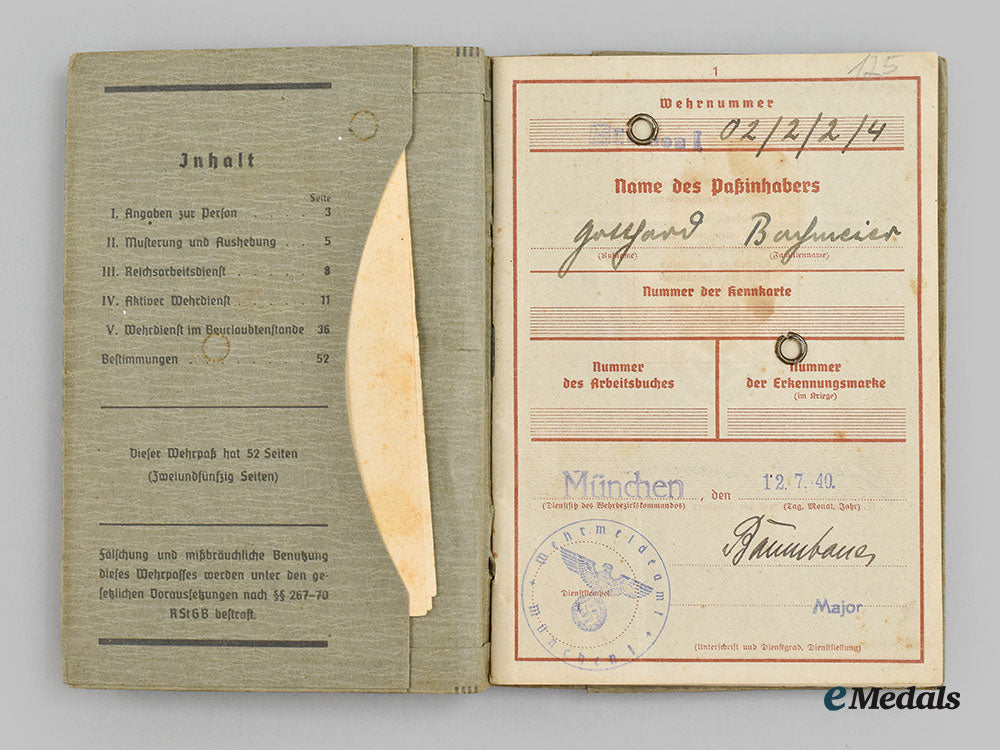 Inhalt
Seite
I. Angaben zur Person . . . . . 3
II. Musterung und Aushebung . . 5
III. Reichsarbeitsdienst . . . . . 8
IV. Aktiver Wehrdienst . . . . . 11
V. Wehrdienst im Beurlaubtenstande 36
Bestimmungen . . . . . . . . 52
Dieser Wehrpaß hat 52 Seiten
(Zweiundfünfzig Seiten)
Fälschung und mißbräuchliche Benutzung
dieses Wehrpasses werden unter den ge-
setzlichen Voraussetzungen nach §§ 267-70
RStGB bestraft.
1
125
Wehrnummer
02/2/2/4
Name des Paßinhabers
Gotthard Bachmeier
(Rufname) (Familienname)
Nummer der Kennkarte
Nummer
des Arbeitsbuches
Nummer
der Erkennungsmarke
(im Kriege)
München, den 12.7.40.
(Dienstsitz des Wehrbezirkskommandos) (Tag, Monat, Jahr)
Wehrmeldeamt
München 1
Dienststempel
Major
(Unterschrift und Dienstgrad, Dienststellung)
eMedals